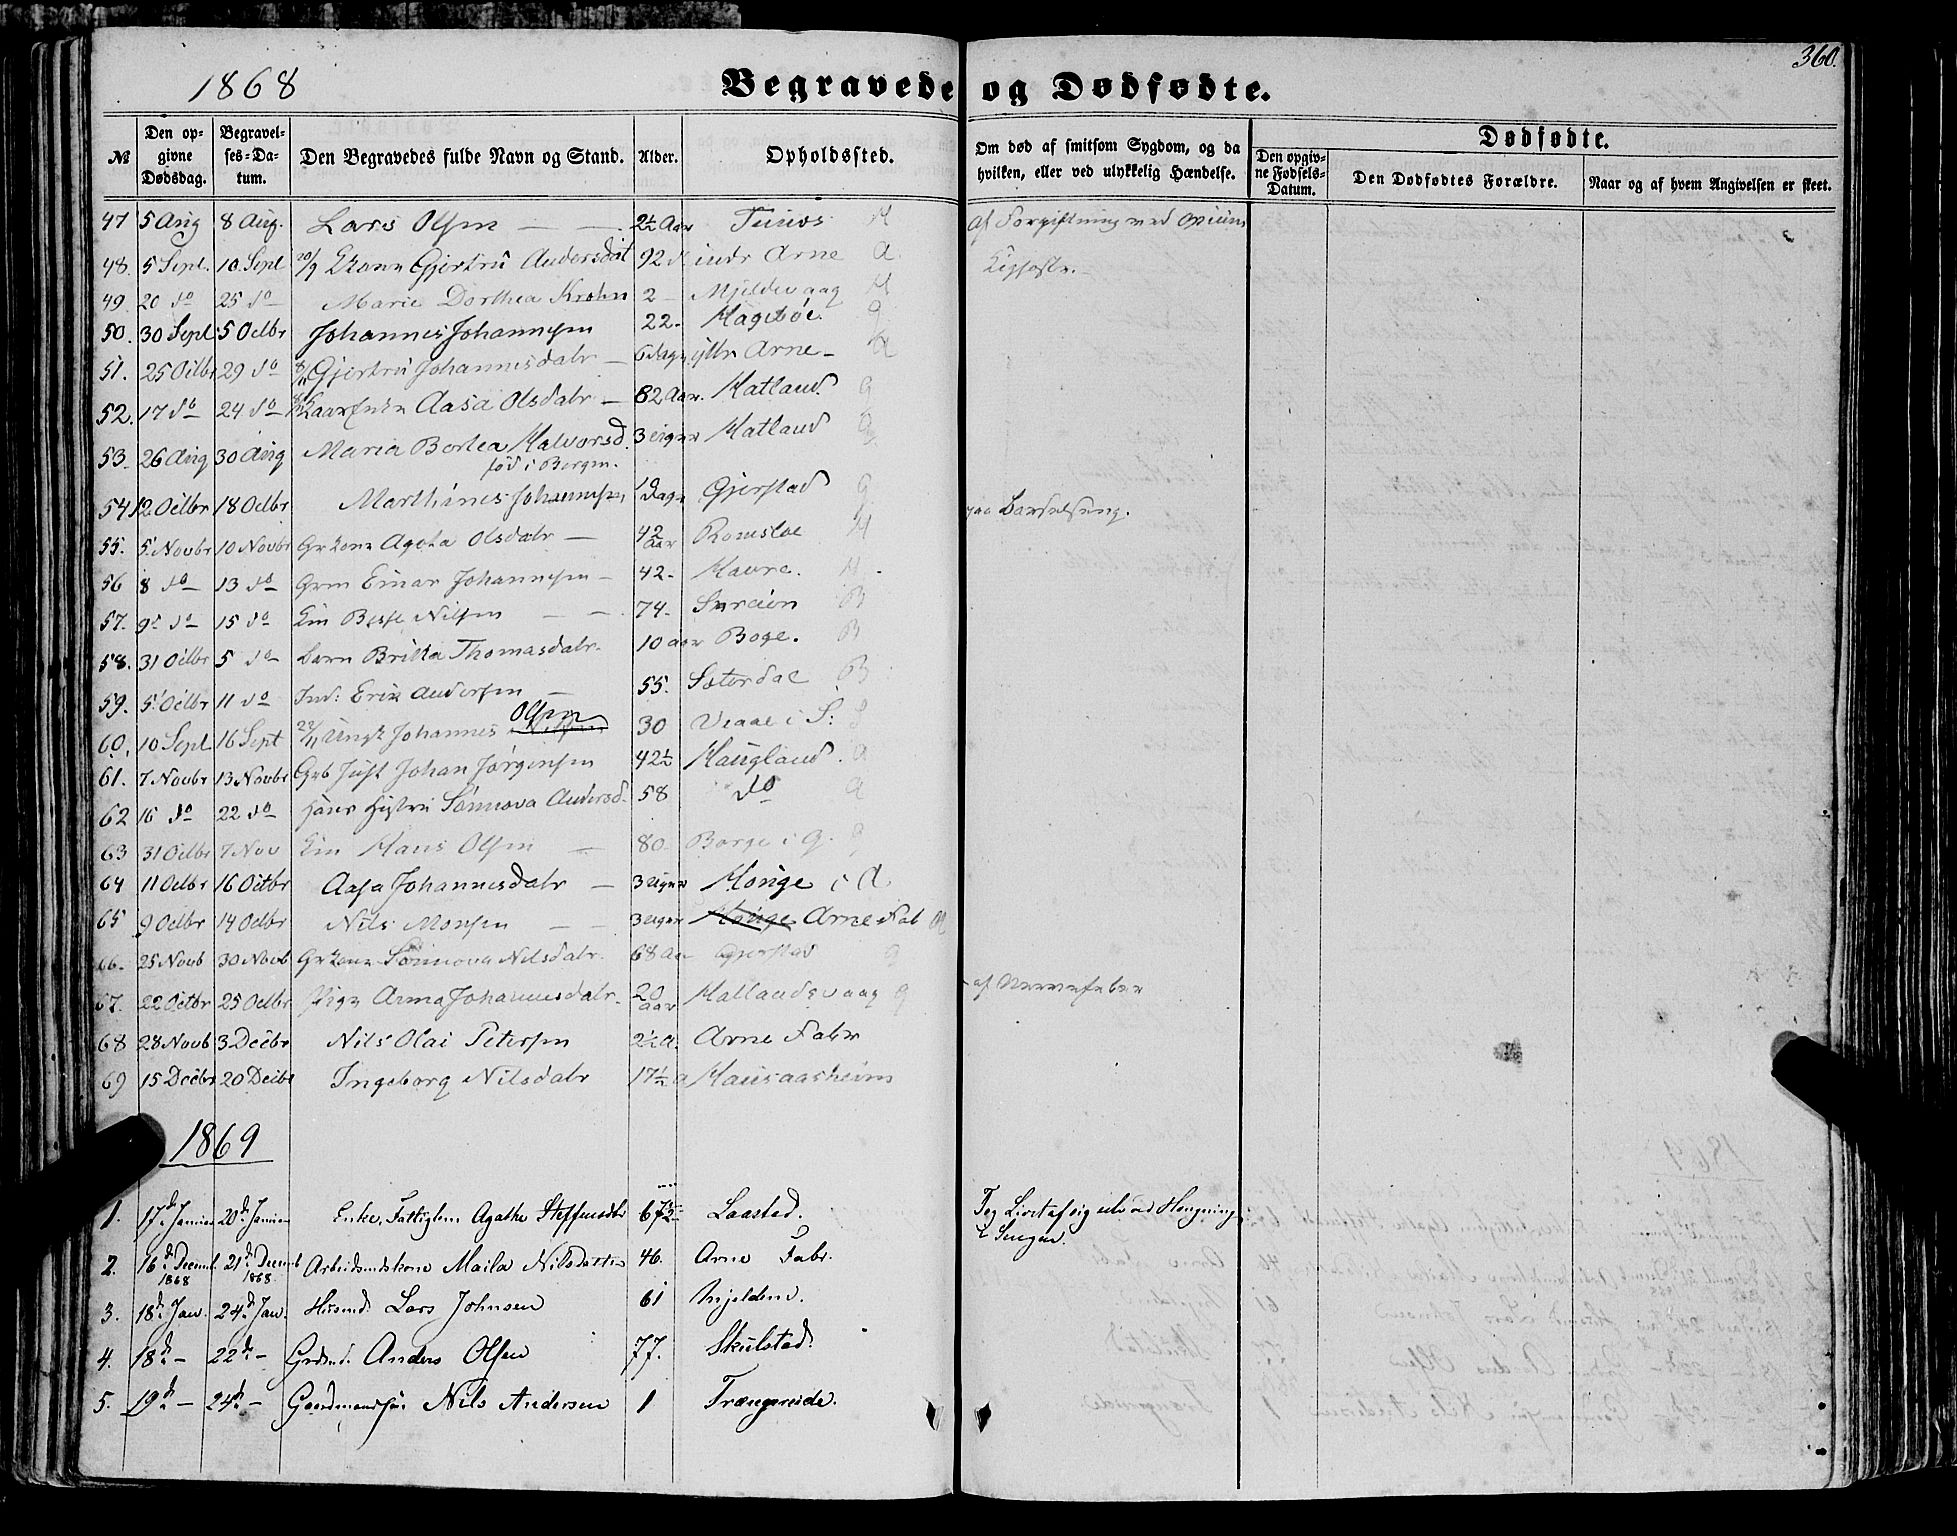 360.
1868
Begravede og Dødfødte.
№ Den opgivne Dødsdag. Begravelses-Datum. Den Begravedes fulde Navn og Stand. Alder. Opholdssted. Om død af smitsom Sygdom, og da hvilken, eller ved ulykkelig Hændelse. Den opgivne Fødsels-Datum. Dødfødte. Den Dødfødtes Forældre. Naar og af hvem Angivelsen er skeet.
47 5 Aug 8 Aug. Lars Olsen 2½ Aar H Af Forgiftning med Opium
48. 5 Sept. 10. Sept Kone Gjertru Andersdat 92 indr Arne A.
49. 20 do 25 do Marie Dorthea Krohn 2 Mjeldevaag H
50. 30 Sept 5 Octbr Johannes Johannesen 22. Hageböe. g
51. 25 Octbr 29 do Gjertru Johannesdatr 6 Dage yttr Arne A
52. 17 do 24 do Aasa Olsdatr 82 Aar. Hatland. g
53. 26 Aug 30 Aug Maria Bortea Halvorsd. 3 uger Hatland g
fød i Bergen.
54 12. Octbr 18 Octbr Marthinus Johannesen Dage Gjerstad g
55. 5 Novbr 10 Novbr Gr kone Ageta Olsdatr 42 aar Romsloe H paa Barselseng.
56 8 do 13 do Grm Einar Johannesen 42. Havre. H.
57. 9 do 15 do Nilsen 74. B
58. 31 Octbr 5 do barn Britta Thomasdatr. 10 aar Boge. B
59. 5 Octbr 11 do Ind: Erik Andersen 55. Sæterdal B
60. 10 Sept 16 Sept Johannes Olsen 30 i S:
61. 7 Novbr 13 Novbr Johan Jørgensen 42½ Haugland. A
62 16 do 22 do Sønnova Andersd. 58 do A
63 31 Octbr 7 Nov Hans Olsen 80. Borge i G. g
64 11 Octbr 16 Octbr Aasa Johannesdatr 3 uger Houge i A.
65 9 Octbr 14 Octbr Nils Monsen 3 uger Houge Arne Fab
66. 25 Novb 30 Novb Gr kone Sønnova Nilsdatr. 68 Aar Gjerstad g
67. 22 Octbr 25 Octbr Pige Anna Johannesdatr. 20 aar Hatlandsvaag g af Nervefeber
68 28 Novb 3 Decbr Nils Olai Petersen 2½ A. Arne Fabr
69 15 Decbr 20 Decbr Ingeborg Nilsdatr 17½ a Hausaasheim
1869
1. 17de Januar 20de Januar Enke, Fattiglem Agathe Steffensdtr 67½ Laastad. Tog Livet af sig selv ved Hængning i Sengen.
2. 16de Decemb 1868 21de Decemb 1868. Arbeidsmdskone Maila Nilsdatter 46. Arne Fabr.
3. 18de Jan. 24de Jan. Husmd. Lars Johnsen 61 Mjeldem.
4. 18de – 22de – Grdmd. Anders Olsen 77. Skulstad.
5. 19de – 24de – Gaardmandssøn Nils Andersen 1 Trængereide.